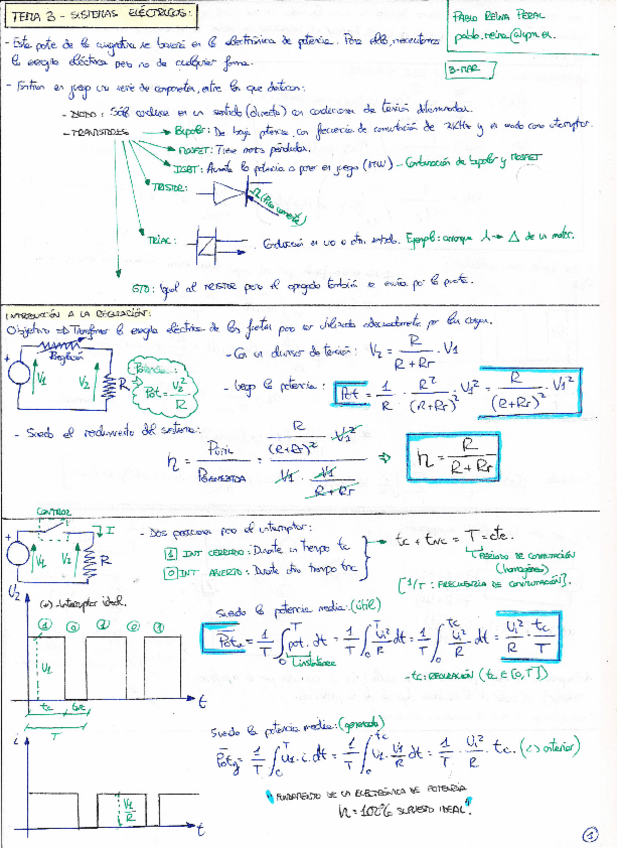 TEMA 3 - SISTEMAS ELÉCTRICOS:
PABLO REINA PERAL
pablo.reina@upm.es
3-MAR
- Esta parte de la asignatura se basará en la electrónica de potencia. Para ello, necesitamos
la energía eléctrica pero no de cualquier forma.
- Entran en juego una serie de componentes, entre los que destacan:
- DIODO: Sólo conduce en un sentido (directo) en condiciones de tensión determinadas.
- TRANSISTORES → Bipolar: De baja potencia, con frecuencia de conmutación de 2KHz y es usado como interruptor.
MOSFET: Tiene menos pérdidas.
IGBT: Aumenta la potencia a poner en juego (MW) - Combinación de bipolar y MOSFET
TIRISTOR:
TRIAC: Conducción en uno u otro sentido. Ejemplo: arranque λ → Δ de un motor.
GTO: Igual al TIRISTOR pero el apagado también se envía por la puerta.
INTRODUCCIÓN A LA REGULACIÓN:
Objetivo ⇒ Transformar la energía eléctrica de las fuentes para ser utilizada adecuadamente por las cargas.
Regulación
+ V1 V2 R
Potencia:
Pot = V2² / R
- Con un divisor de tensión: V2 = R / (R + Rr) · V1
- Luego la potencia: Pot = 1/R · R² / (R+Rr)² · V1² = R / (R+Rr)² · V1²
- Siendo el rendimiento del sistema:
η = PÚTIL / PGENERADA = (R / (R+Rr)² · V1²) / (V1 · V1 / (R+Rr)) ⇒ η = R / (R + Rr)
CONTROL
I
+ V1 V2 R
- Dos posiciones para el interruptor:
1 INT CERRADO: Durante un tiempo tc
0 INT ABIERTO: Durante otro tiempo tnc
→ tc + tnc = T = cte.
PERÍODO DE CONMUTACIÓN
(homogéneo)
[1/T : FRECUENCIA DE CONMUTACIÓN].
V2
(*) - Interruptor ideal.
1 0 1 0 1
V1
tc tnc
T
t
Siendo la potencia media: (útil)
Potu = 1/T ∫₀ᵀ pot. dt = 1/T ∫₀ᵀ U1²/R dt = 1/T ∫₀ᵗᶜ U1²/R dt = U1²/R · tc/T
instantánea
- tc: REGULACIÓN (tc ∈ [0,T])
Siendo la potencia media: (generada)
Potg = 1/T ∫₀ᵀ U1 · i · dt = 1/T ∫₀ᵗᶜ U1 · U1/R dt = 1/T · U1²/R · tc. (<> anterior)
"FUNDAMENTO DE LA ELECTRÓNICA DE POTENCIA
η = 100% SUPUESTO IDEAL".
i
V1/R
t
1